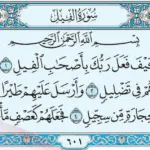 سُورَةُ الْفِيلِ
بِسْمِ اللَّهِ الرَّحْمَٰنِ الرَّحِيمِ
كَيْفَ فَعَلَ رَبُّكَ بِأَصْحَٰبِ الْفِيلِ ١
هُمْ فِى تَضْلِيلٍ ٢ وَأَرْسَلَ عَلَيْهِمْ طَيْرًا
حِجَارَةٍ مِّن سِجِّيلٍ ٤ فَجَعَلَهُمْ كَعَصْفٍ
٦٠١